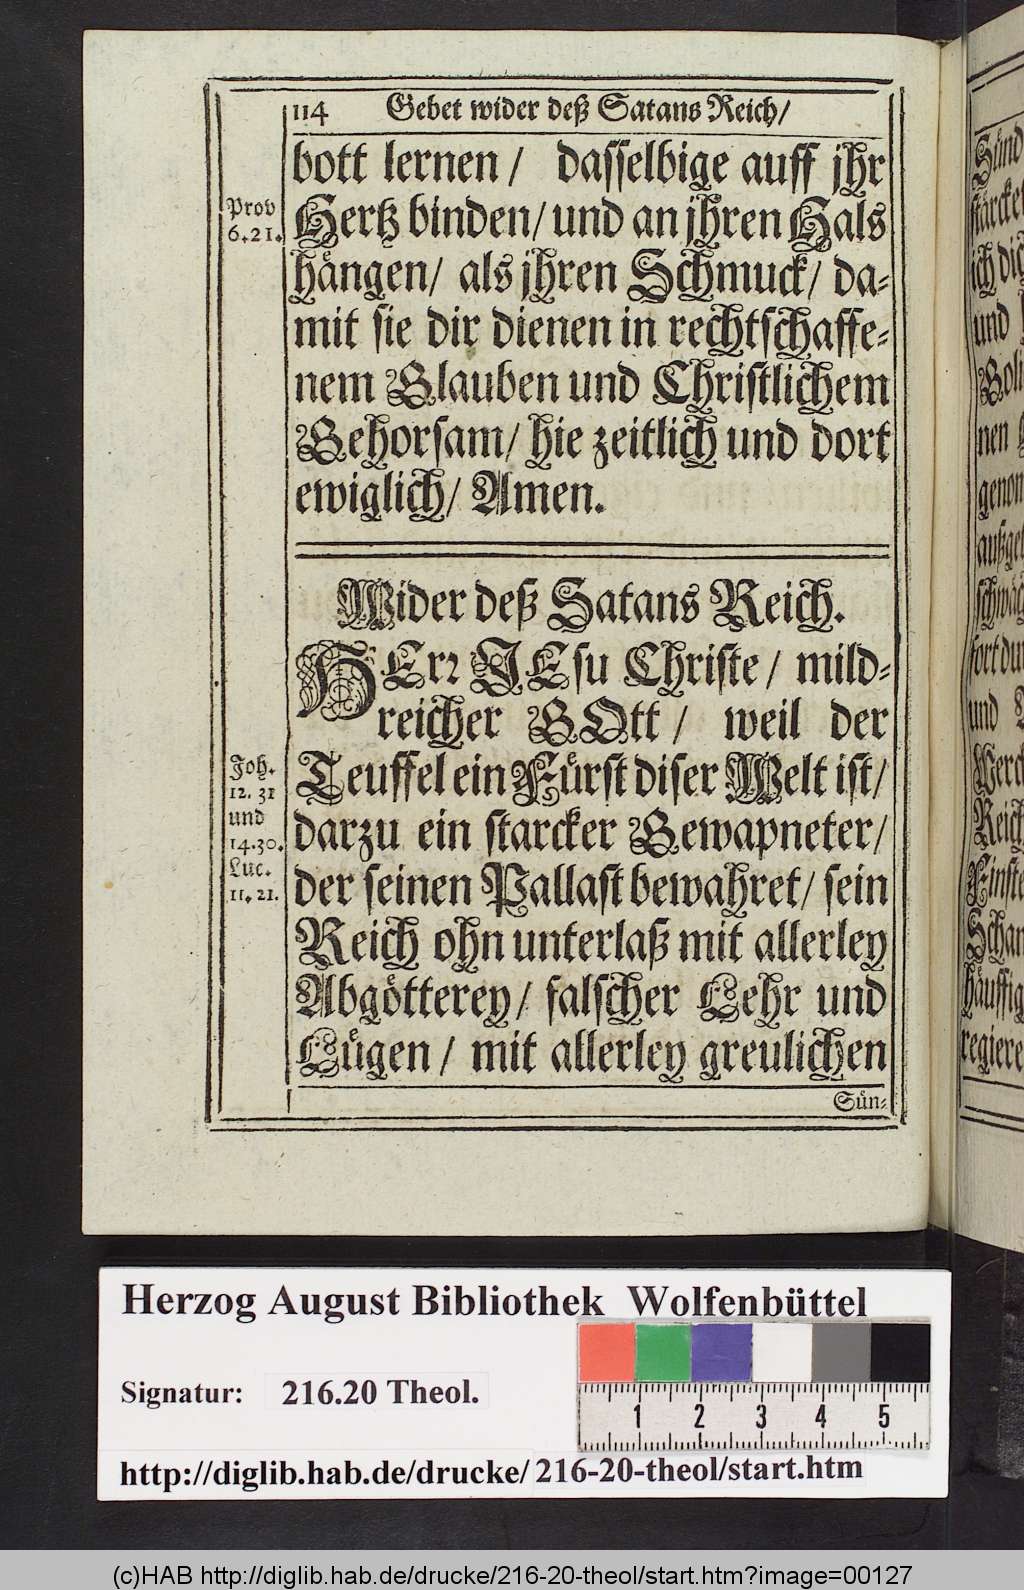 114 Gebet wider deß Satans Reich/
bott lernen / dasselbige auff jhr
Hertz binden/ und an jhren Hals
hängen/ als jhren Schmuck/ da-
mit sie dir dienen in rechtschaffe-
nem Glauben und Christlichem
Gehorsam/ hie zeitlich und dort
ewiglich/ Amen.
Prov
6.21.
Wider deß Satans Reich.
HErr JEsu Christe / mild-
reicher GOtt / weil der
Teuffel ein Fürst diser Welt ist/
darzu ein starcker Gewapneter/
der seinen Pallast bewahret/ sein
Reich ohn unterlaß mit allerley
Abgötterey/ falscher Lehr und
Lügen / mit allerley greulichen
Joh.
12. 31
und
14.30.
Luc.
11. 21.
Sün-
Sünd
stärcke
ich di
und
nen
genom
außge
schwäc
fort du
und
Werck
Reich
Schan
häuffig
regiere
Herzog August Bibliothek Wolfenbüttel
Signatur: 216.20 Theol.
1 2 3 4 5
http://diglib.hab.de/drucke/216-20-theol/start.htm
(c)HAB http://diglib.hab.de/drucke/216-20-theol/start.htm?image=00127